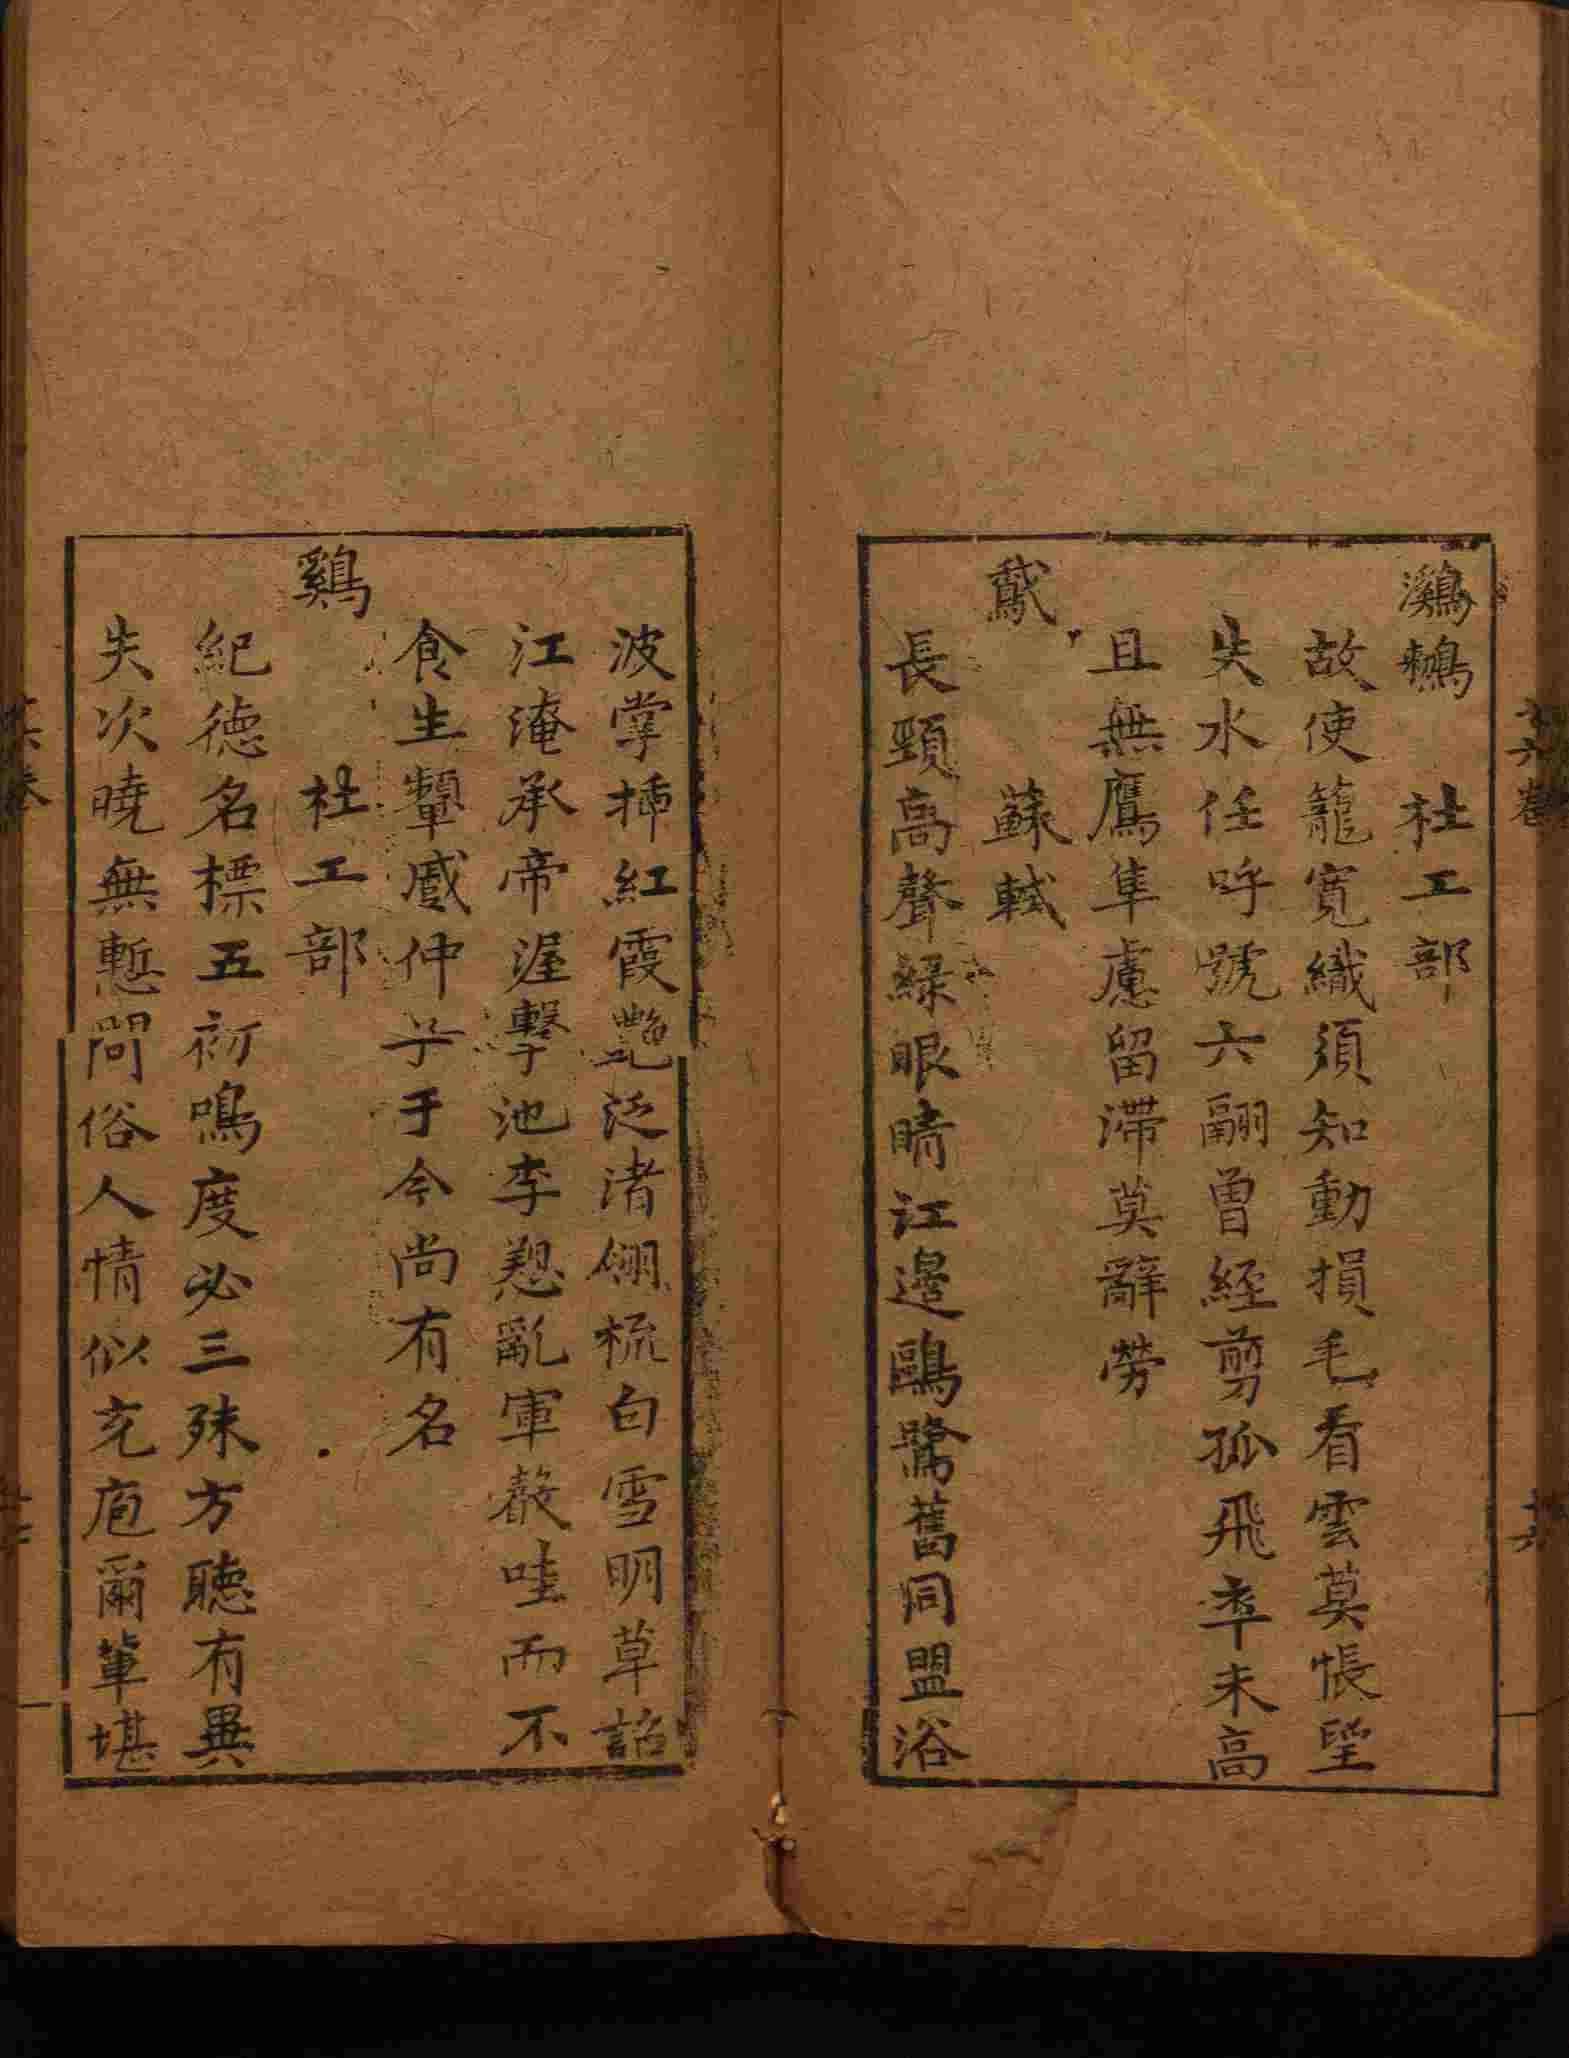 鸂鶒 杜工部
故使籠寛織須知動損毛看雲莫悵望
失水任呼號六翮曾經剪孤飛卒未高
且無鷹隼慮留滯莫辭勞
鵞 蘇軾
長頸高聲緑眼睛江邊鷗鷺舊同盟浴
波掌揷紅霞艷泛渚翎梳白雪明草詔
江淹承帝渥擊池李愬亂軍聲哇而不
食生顰戚仲子于今尚有名
鷄 杜工部
紀德名標五初鳴度必三殊方聽有異
失次曉無慙問俗人情似充庖爾輩堪